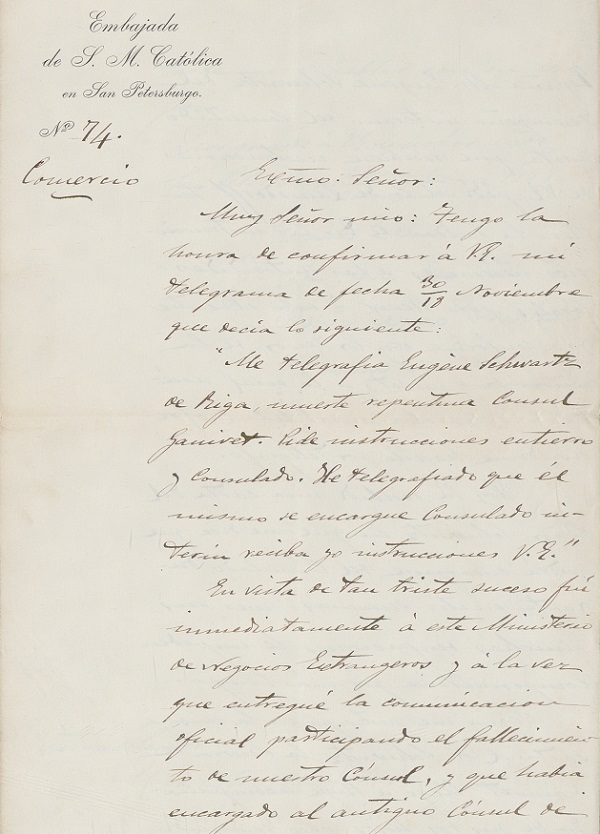 Embajada
de S. M. Católica
en San Petersburgo.
Nº 74.
Comercio
Exmo. Señor:
Muy Señor mio: Tengo la
honra de confirmar á V.E. mi
telegrama de fecha 30/18 Noviembre
que decía lo siguiente:
"Me telegrafia Eugène Schwartz
de Riga, muerte repentina Consul
Ganivet. Pide instrucciones entierro
y Consulado. He telegrafiado que él
mismo se encargue Consulado in-
terin reciba yo instrucciones V.E."
En vista de tan triste suceso fuí
inmediatamente á este Ministerio
de Negocios Extrangeros y á la vez
que entregué la comunicacion
oficial participando el fallecimien-
to de nuestro Cónsul, y que habia
encargado al antiguo Cónsul de